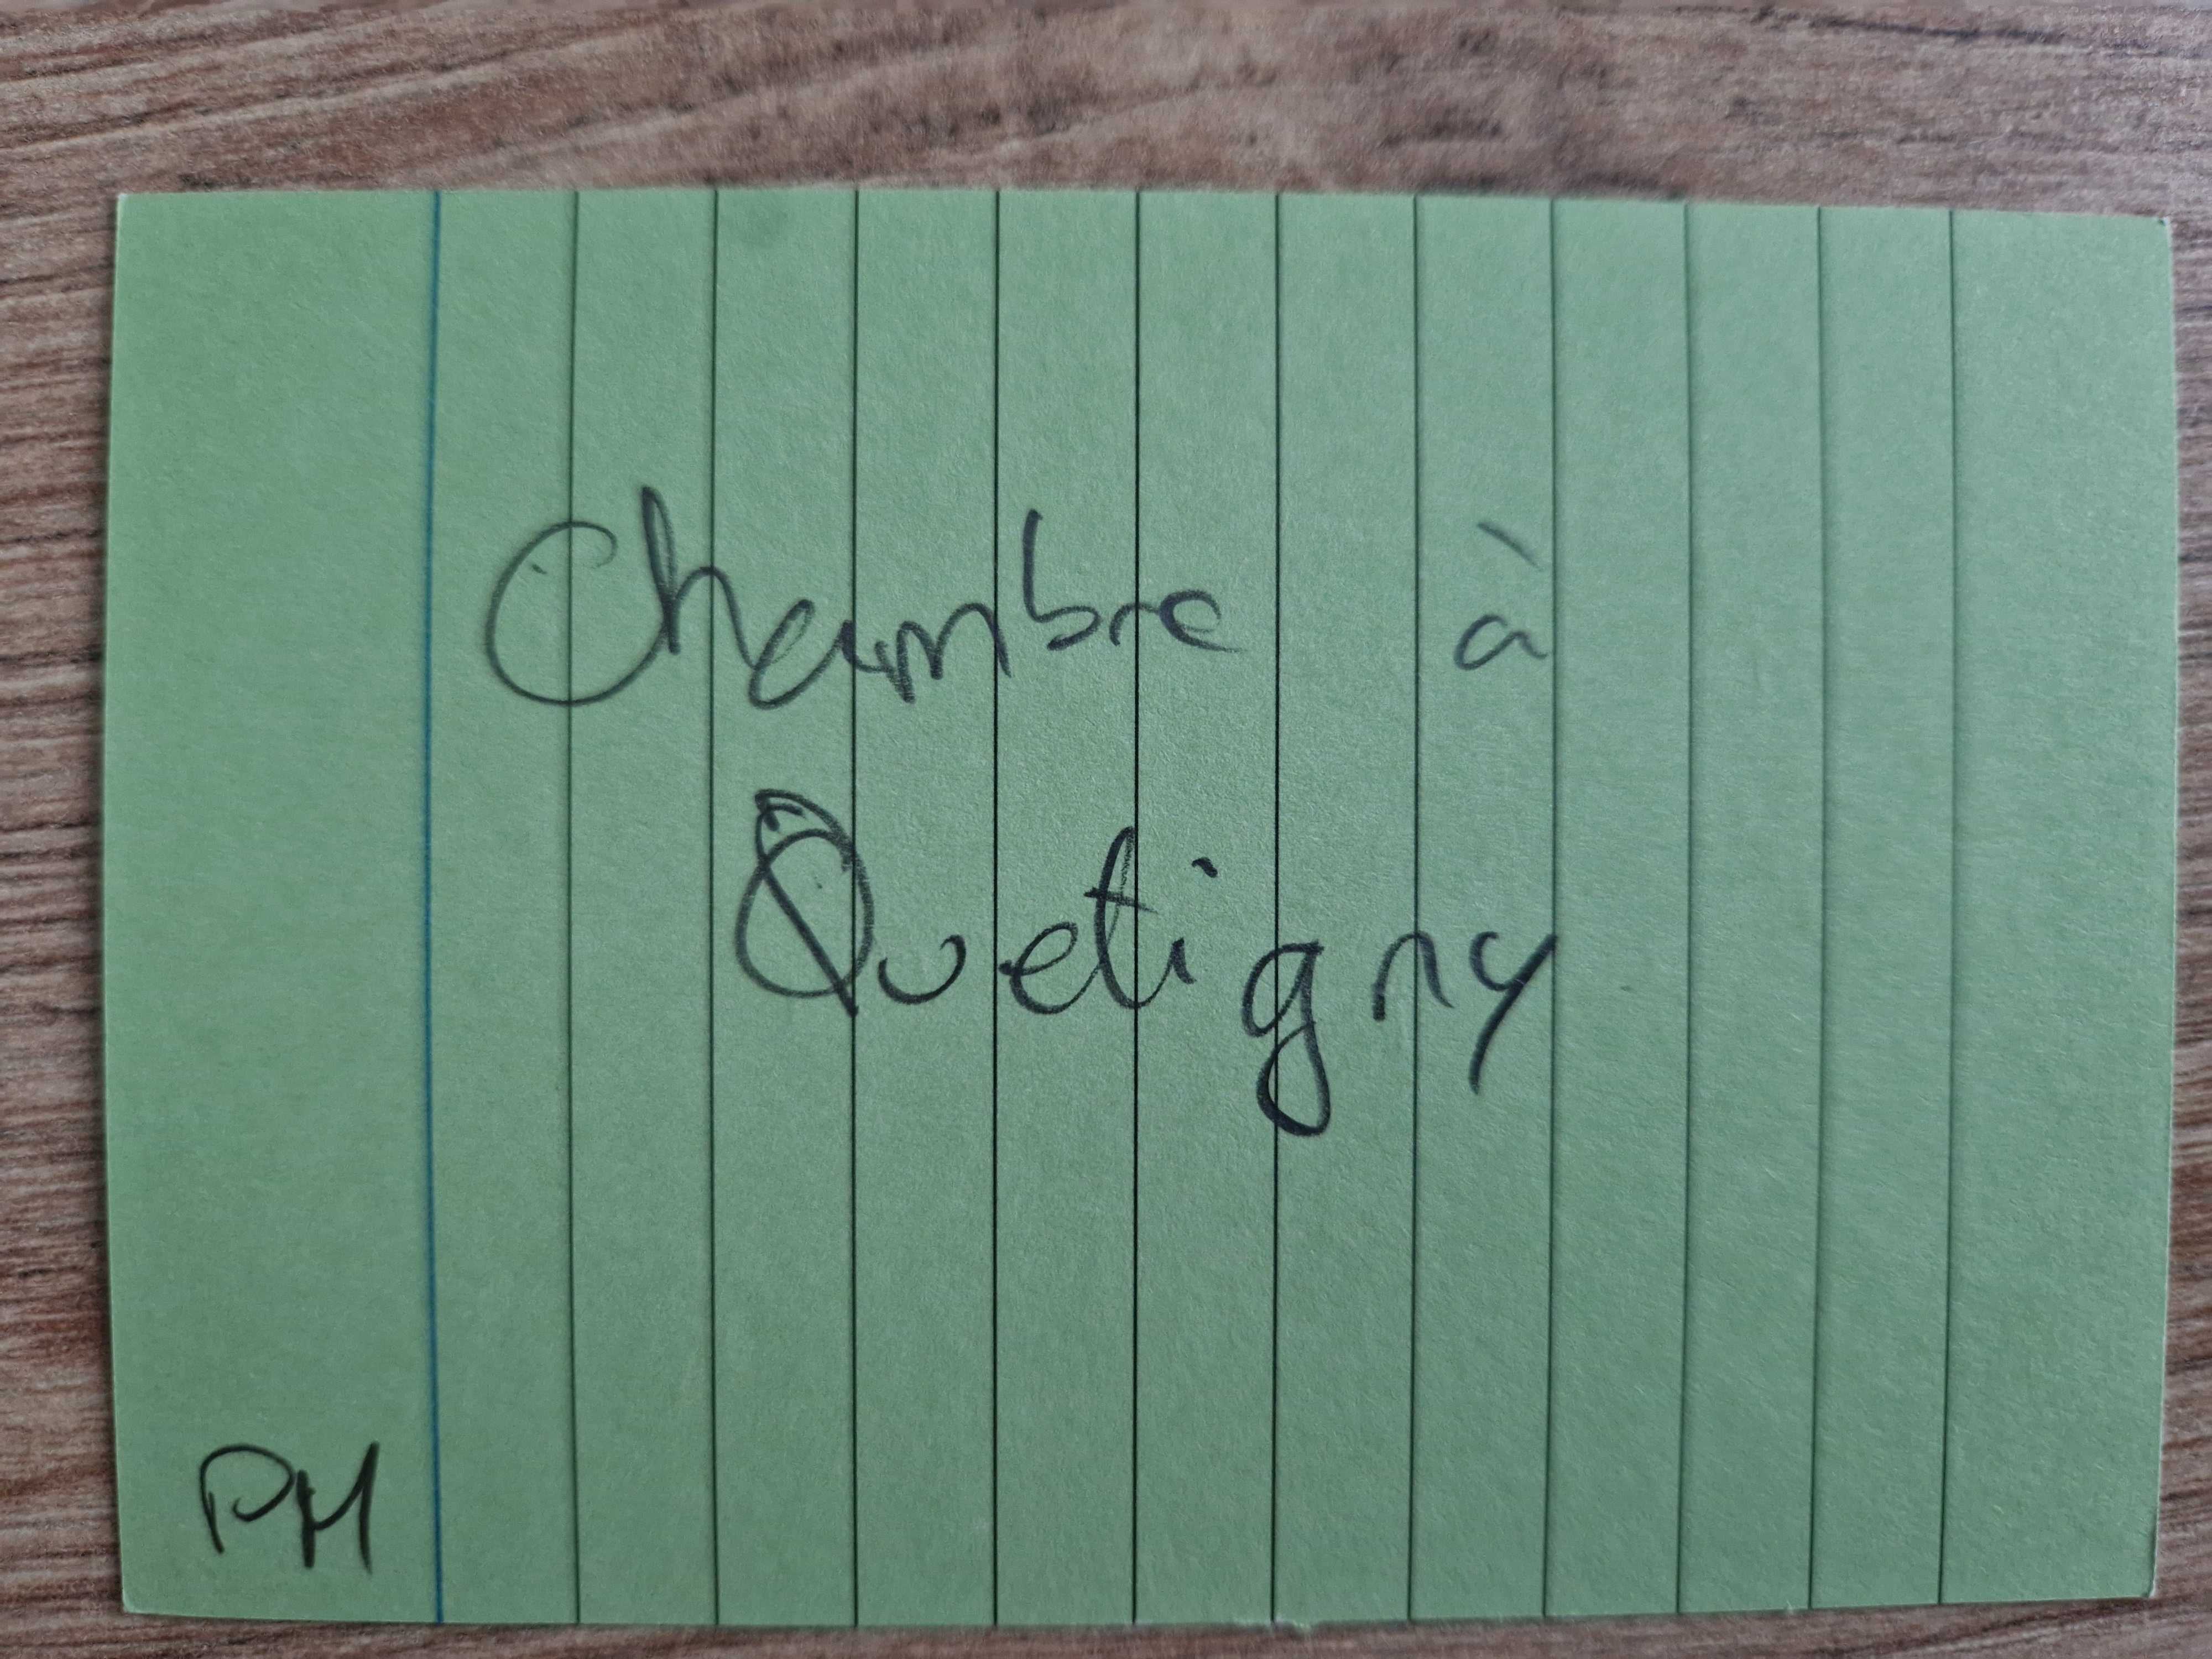 Chambre à
Quetigny
PM